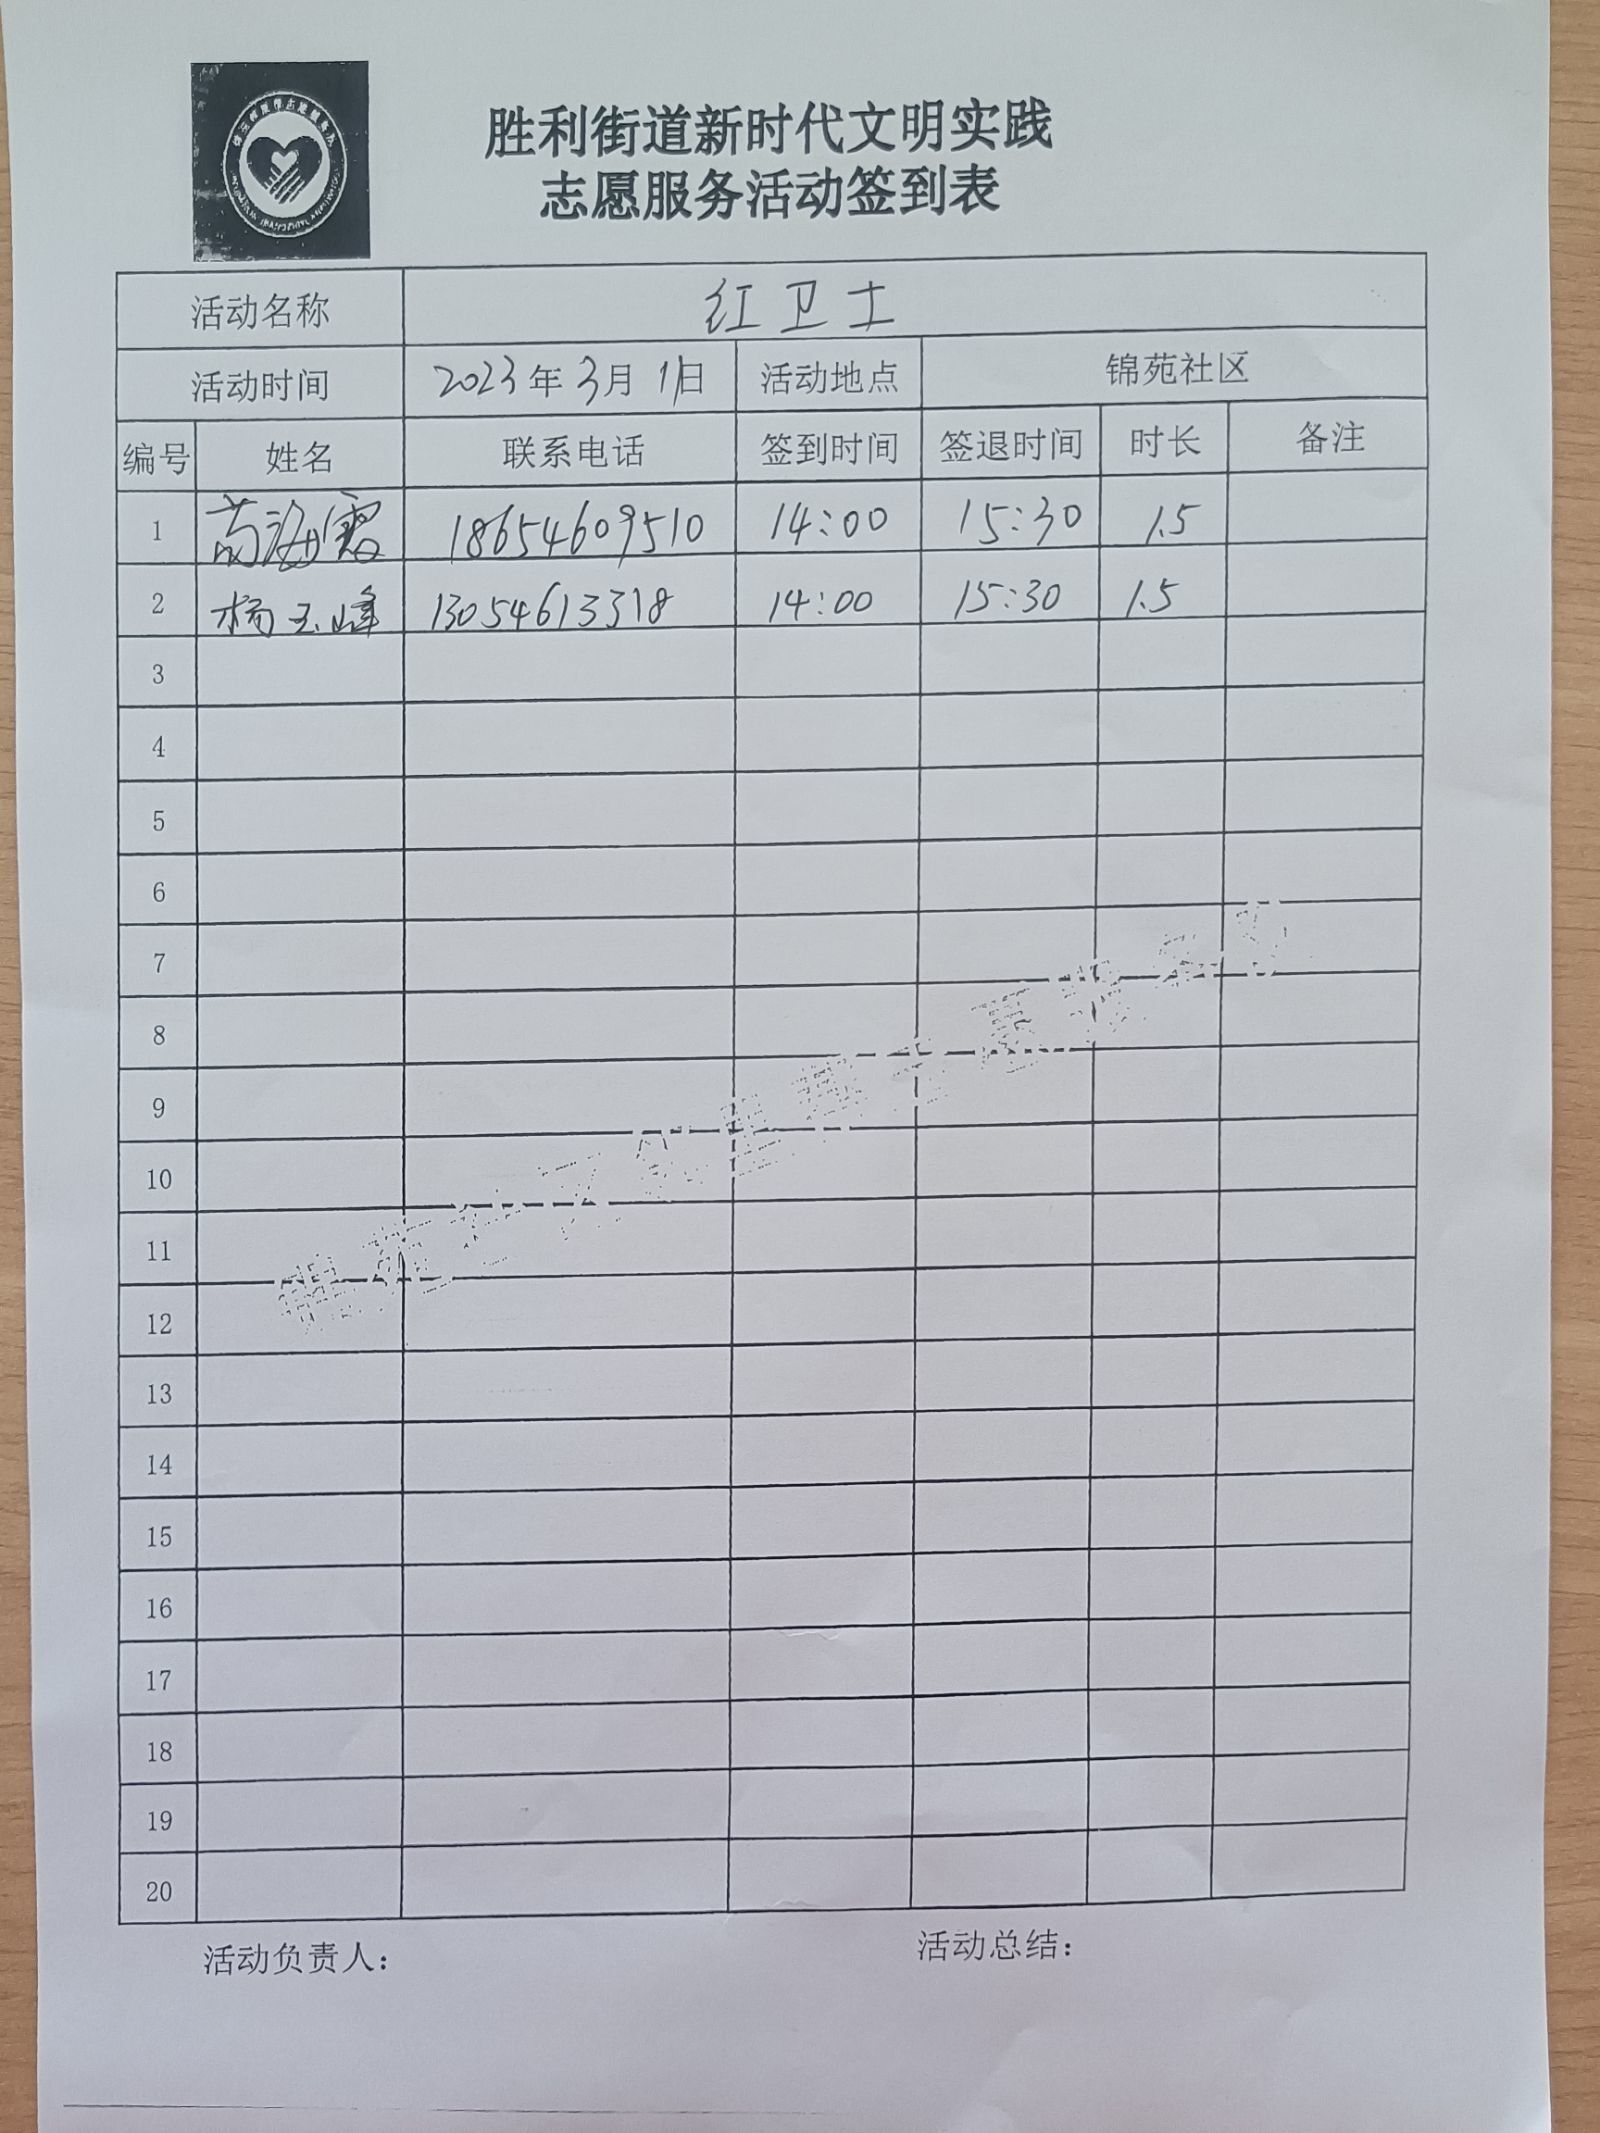 胜利街道新时代文明实践
志愿服务活动签到表
活动名称 红卫士
活动时间 2023年3月1日 活动地点 锦苑社区
编号 姓名 联系电话 签到时间 签退时间 时长 备注
1 18654609510 14:00 15:30 1.5
2 杨玉峰 13054613318 14:00 15:30 1.5
3
4
5
6
7
8
9
10
11
12
13
14
15
16
17
18
19
20
活动负责人： 活动总结：